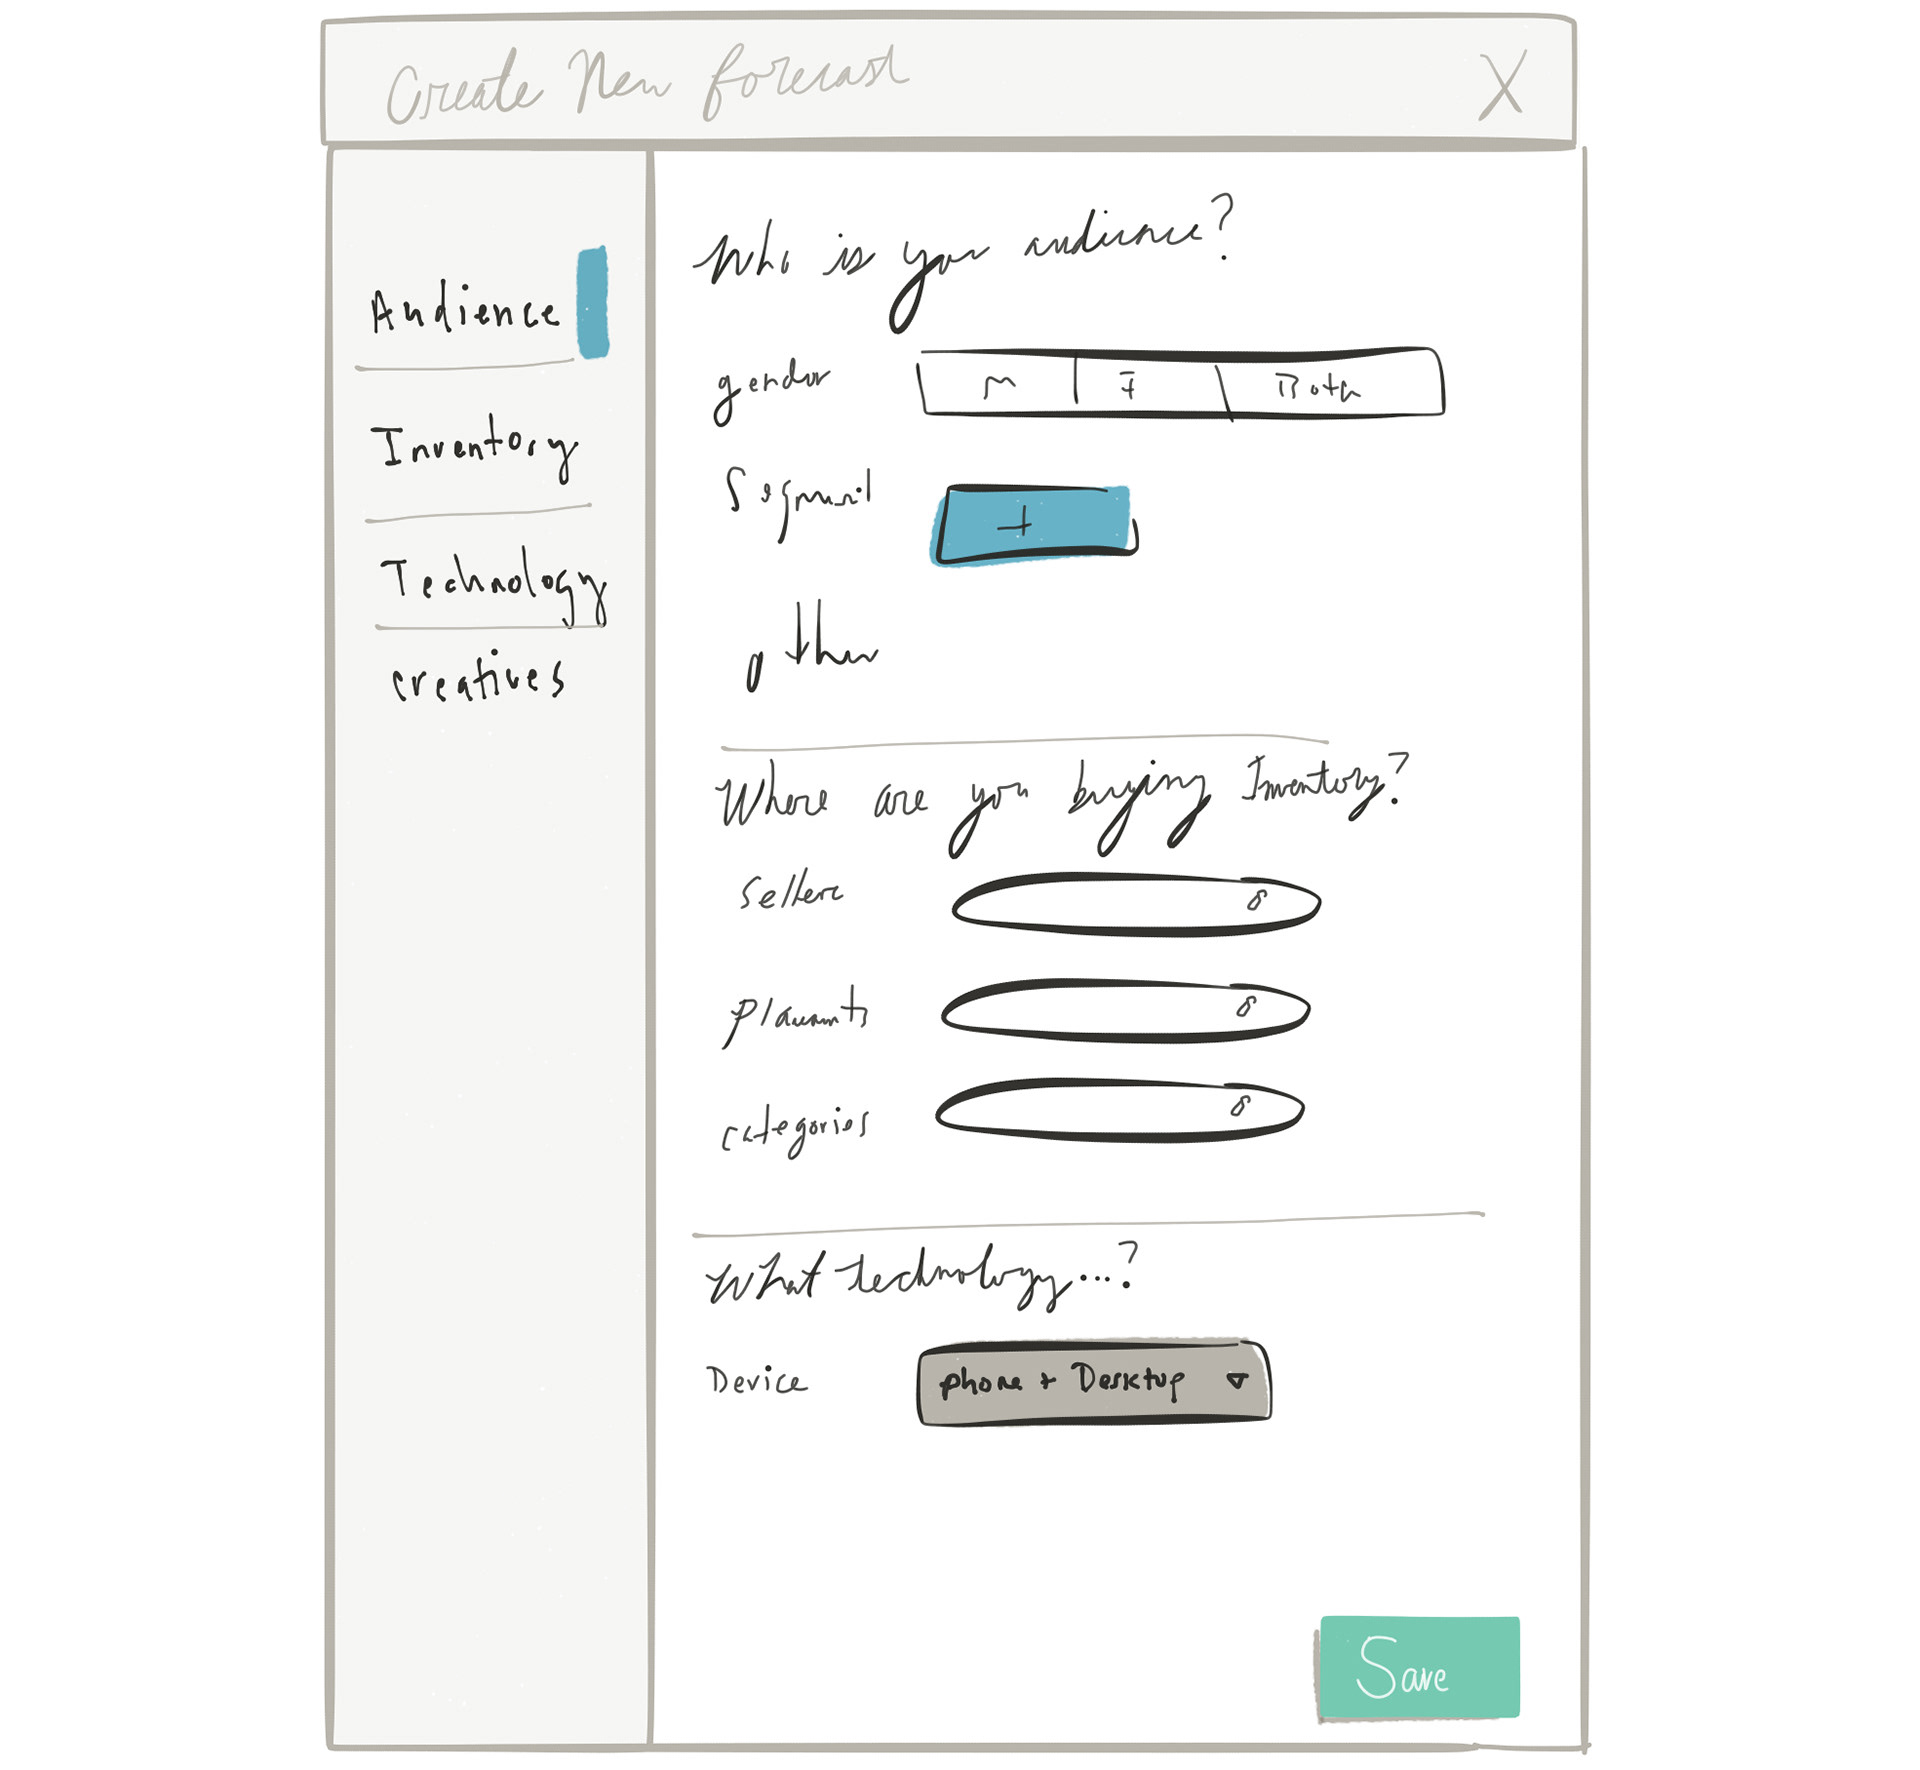 Create New forecast X
Audience
Inventory
Technology
creatives
Who is your audience?
gender M F Both
Segment +
other
Where are you buying Inventory?
Sellers
placements
categories
What technology...?
Device phone + Desktop
Save